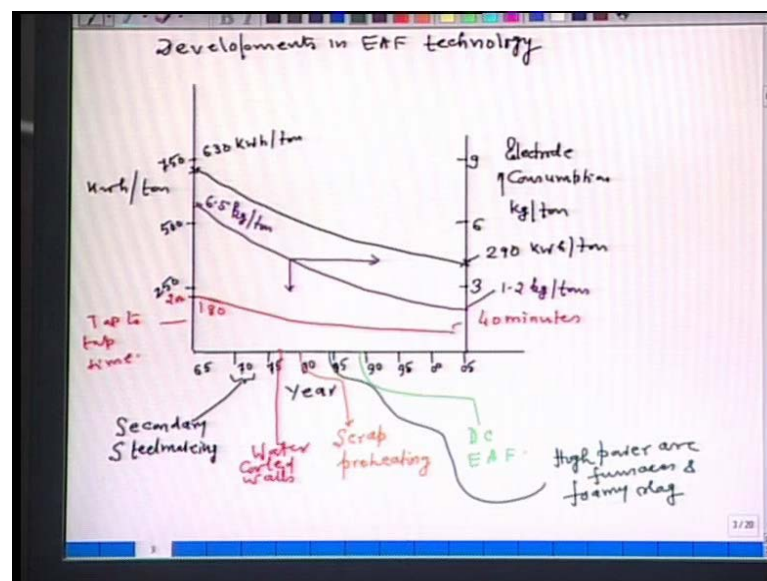 Developments in EAF technology
750
630 kwh/ton
kwh/ton
6.5 kg/ton
500
250
200
180
Tap to
tap
time.
9
Electrode
Consumption
kg/ton
6
290 kwh/ton
3
1.2 kg/ton
40 minutes
65 70 75 80 85 90 95 00 05
Year
Secondary
Steelmaking
Water
Cooled
walls
Scrap
preheating
DC
EAF.
High power arc
furnaces &
foamy slag
3/20
3